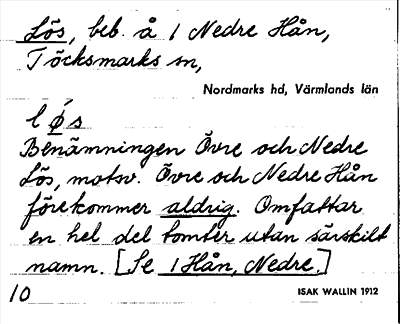 Lös, beb. å 1 Nedre Hån,
Töcksmarks sn,
Nordmarks hd, Värmlands län
l ǿ s
Benämningen Övre och Nedre
Lös, motsv. Övre och Nedre Hån
förekommer aldrig. Omfattar
en hel del tomter utan särskilt
namn. [Se 1 Hån, Nedre.]
10
ISAK WALLIN 1912